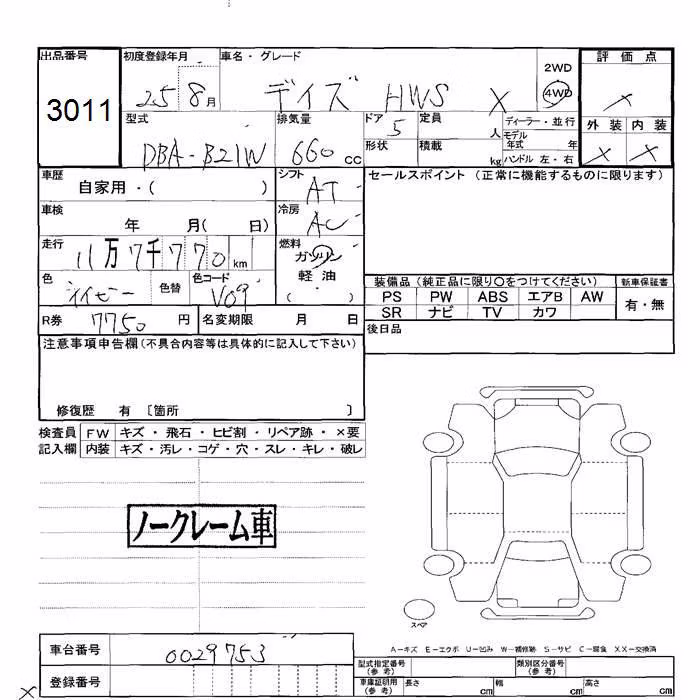 出品番号 初度登録年月 車名・グレード 評価点
3011 25 8月 デイズ HWS X 2WD 4WD X
型式 排気量 ドア 定員 ディーラー・並行 外装 内装
DBA-B21W 660cc 5 人 モデル年式 年 X X
形状 積載 kg ハンドル 左・右
車歴 自家用・( ) シフト AT セールスポイント (正常に機能するものに限ります)
車検 年 月( 日) 冷房 AC
走行 11万7千770km 燃料 ガソリン
軽・油
( )
色 ネイビー 色替 色コード V09
装備品 (純正品に限り○をつけてください) 新車保証書
PS PW ABS エアB AW 有・無
SR ナビ TV カワ
R券 7750円 名変期限 月 日 後日品
注意事項申告欄(不具合内容等は具体的に記入して下さい)
修復歴 有 〔箇所 〕
検査員 FW キズ・飛石・ヒビ割・リペア跡・×要
記入欄 内装 キズ・汚レ・コゲ・穴・スレ・キレ・破レ
ノークレーム車
スペア
A-キズ E-エクボ U-凹み W-補修跡 S-サビ C-腐食 XX-交換済
車台番号 0029753
登録番号
型式指定番号(参考) 類別区分番号(参考)
車庫証明用(参考) 長さ cm 幅 cm 高さ cm
X